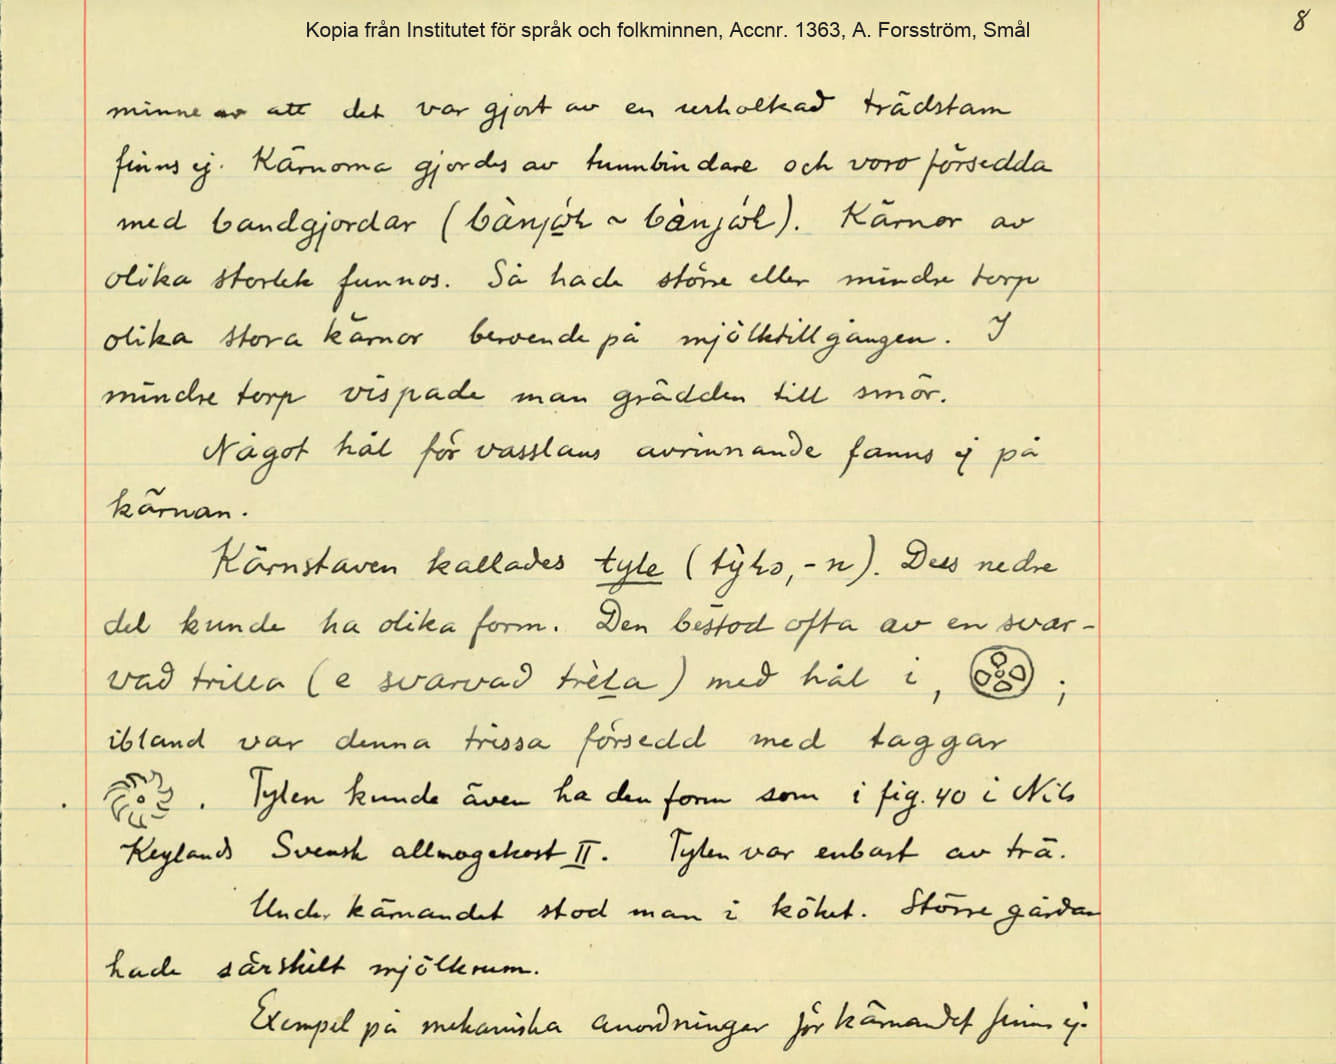 8
Kopia från Institutet för språk och folkminnen, Accnr. 1363, A. Forsström, Smål
minne av att det var gjort av en urholkad trädstam
finns ej. Kärnorna gjordes av tunnbindare och voro försedda
med bandgjordar ( ~ ). Kärnor av
olika storlek funnos. Så hade större eller mindre torp
olika stora kärnor beroende på mjölktillgången. I
mindre torp vispade man grädden till smör.
Något hål för vasslans avrinnande fanns ej på
kärnan.
Kärnstaven kallades tyle ( , -n). Dess nedre
del kunde ha olika form. Den bestod ofta av en svar-
vad trilla (e svarvad ) med hål i, ;
ibland var denna trissa försedd med taggar
. Tylen kunde även ha den form som i fig. 40 i Nils
Keylands Svensk allmogekost II. Tylen var enbart av trä.
Under kärnandet stod man i köket. Större gårdar
hade särskilt mjölkrum.
Exempel på mekaniska anordningar för kärnandet finns ej.